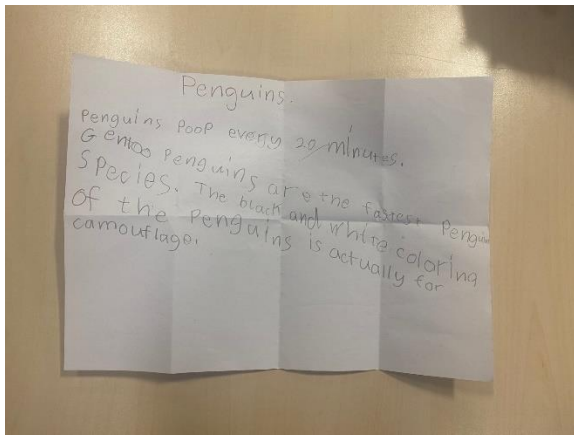 Penguins.
Penguins poop every 20 minutes.
Gentoo Penguins are the fastest Penguin
Species. The black and white coloring
of the penguins is actually for
camouflage.